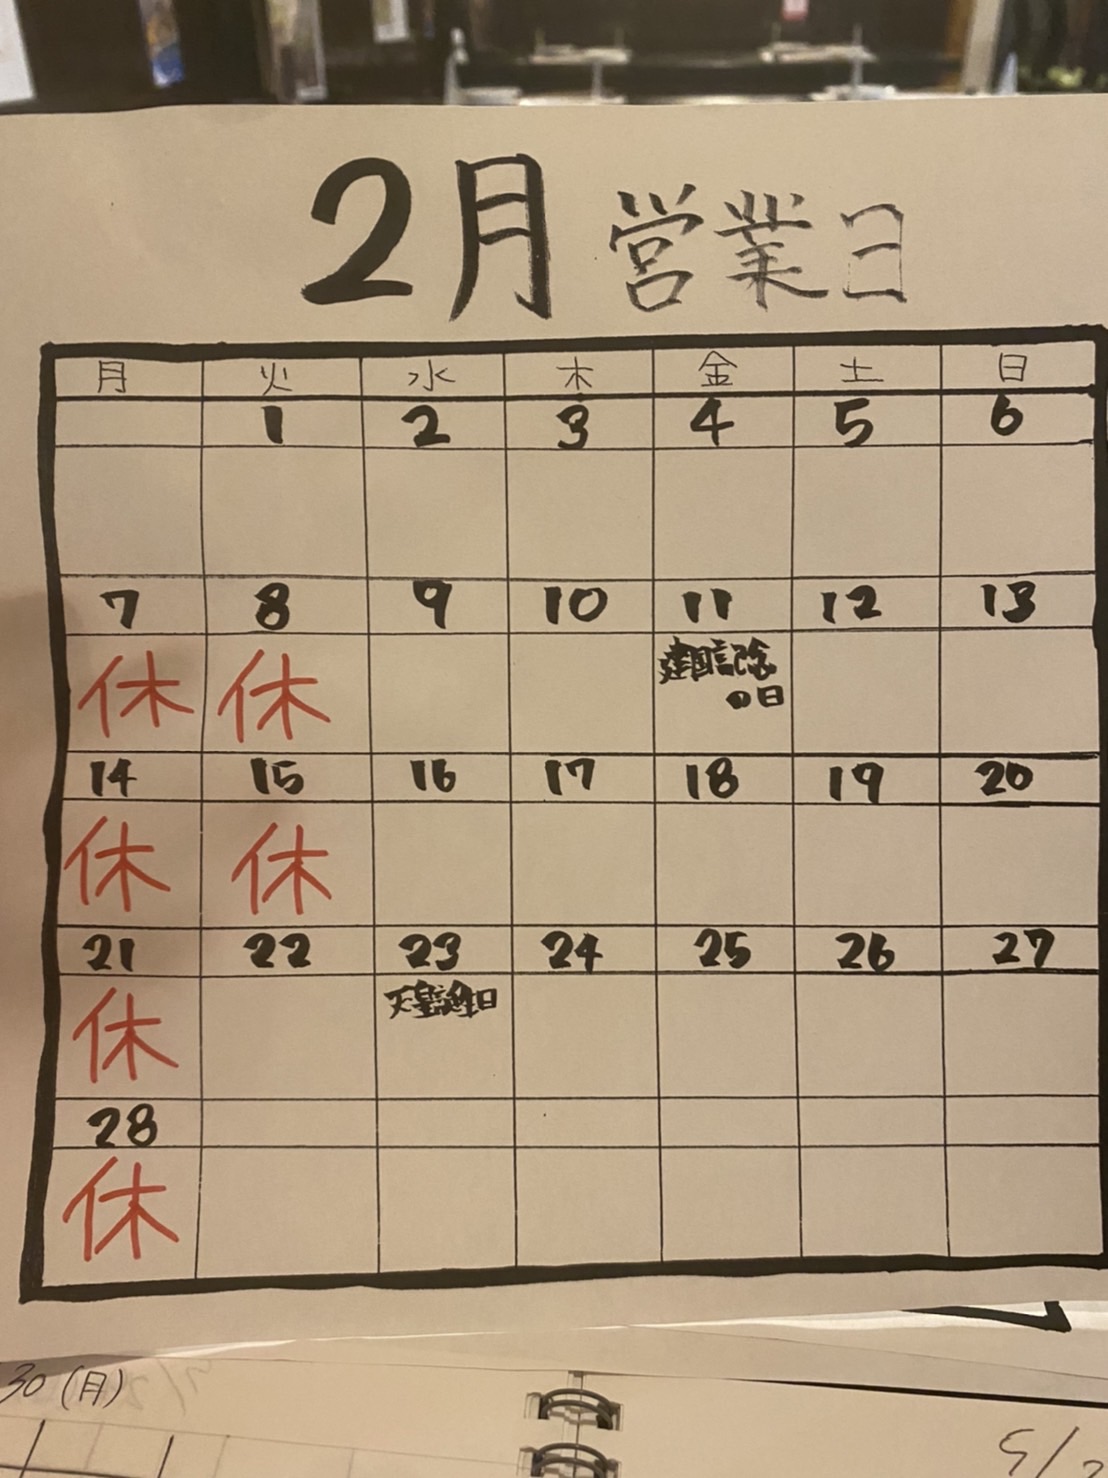 2月 営業日
月 火 水 木 金 土 日
1 2 3 4 5 6
7 8 9 10 11 12 13
休 休 建国記念
の日
14 15 16 17 18 19 20
休 休
21 22 23 24 25 26 27
休 天皇誕生日
28
休
30(月)
5/2